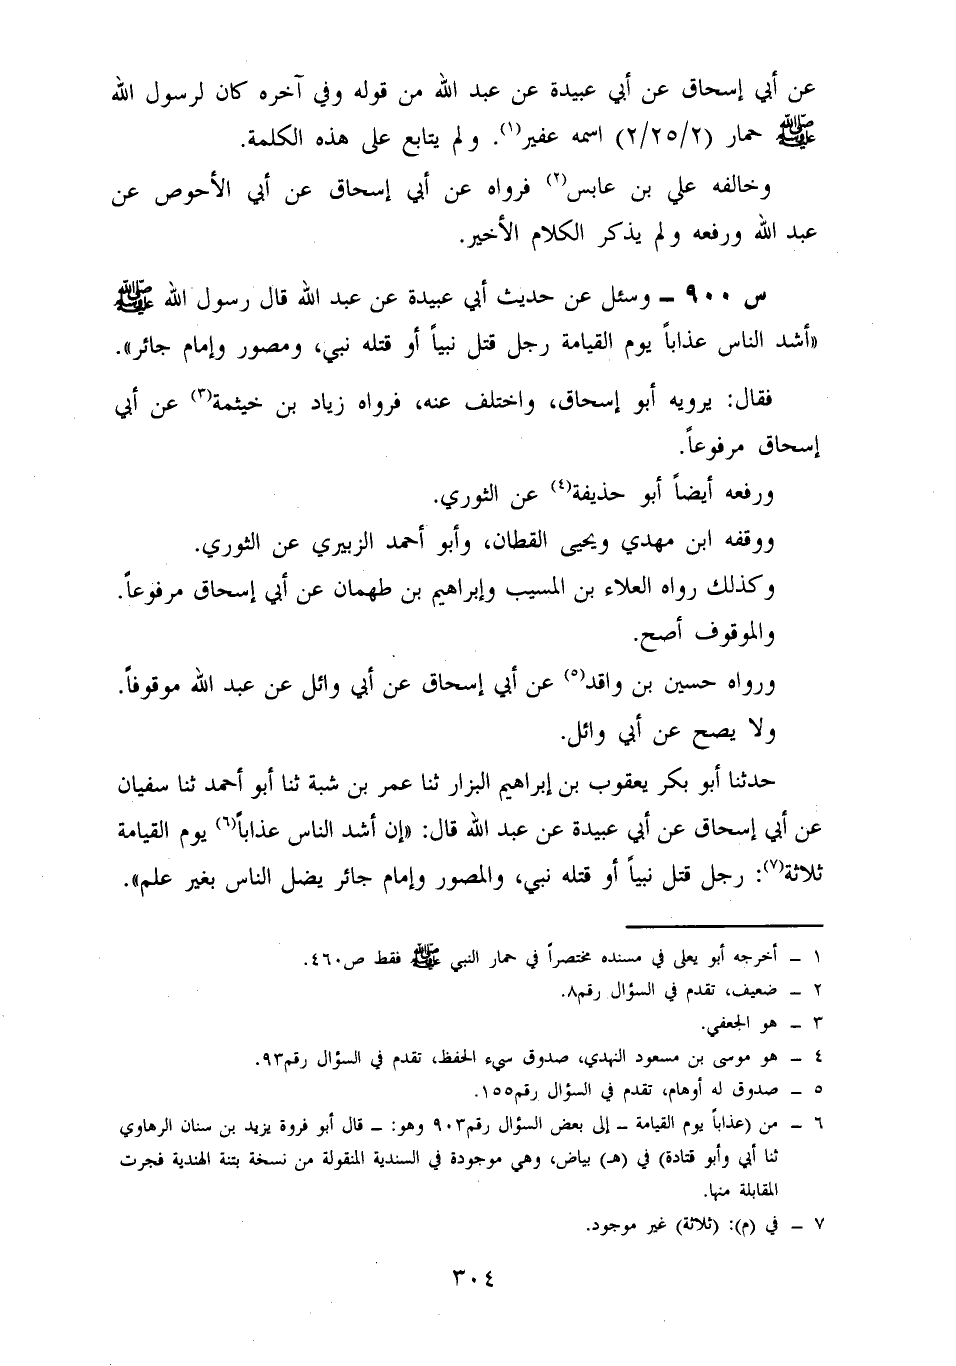 عن أبي إسحاق عن أبي عبيدة عن عبد الله من قوله وفي آخره كان لرسول الله
ﷺ حمار (٢/٢٥/٢) اسمه عفير(١). ولم يتابع على هذه الكلمة.
وخالفه علي بن عابس(٢) فرواه عن أبي إسحاق عن أبي الأحوص عن
عبد الله ورفعه ولم يذكر الكلام الأخير.
س ٩٠٠ ــ وسئل عن حديث أبي عبيدة عن عبد الله قال رسول الله ﷺ
«أشد الناس عذاباً يوم القيامة رجل قتل نبياً أو قتله نبي، ومصور وإمام جائر».
فقال: يرويه أبو إسحاق، واختلف عنه، فرواه زياد بن خيثمة(٣) عن أبي
إسحاق مرفوعاً.
ورفعه أيضاً أبو حذيفة(٤) عن الثوري.
ووقفه ابن مهدي ويحيى القطان، وأبو أحمد الزبيري عن الثوري.
وكذلك رواه العلاء بن المسيب وإبراهيم بن طهمان عن أبي إسحاق مرفوعاً.
والموقوف أصح.
ورواه حسين بن واقد(٥) عن أبي إسحاق عن أبي وائل عن عبد الله موقوفاً.
ولا يصح عن أبي وائل.
حدثنا أبو بكر يعقوب بن إبراهيم البزار ثنا عمر بن شبة ثنا أبو أحمد ثنا سفيان
عن أبي إسحاق عن أبي عبيدة عن عبد الله قال: «إن أشد الناس عذاباً(٦) يوم القيامة
ثلاثة(٧): رجل قتل نبياً أو قتله نبي، والمصور وإمام جائر يضل الناس بغير علم».
١ ــ أخرجه أبو يعلى في مسنده مختصراً في حمار النبي ﷺ فقط ص٤٦٠.
٢ ــ ضعيف، تقدم في السؤال رقم٨.
٣ ــ هو الجعفي.
٤ ــ هو موسى بن مسعود النهدي، صدوق سيء الحفظ، تقدم في السؤال رقم٩٣.
٥ ــ صدوق له أوهام، تقدم في السؤال رقم١٥٥.
٦ ــ من (عذاباً يوم القيامة ــ إلى بعض السؤال رقم٩٠٣ وهو: ــ قال أبو فروة يزيد بن سنان الرهاوي
ثنا أبي وأبو قتادة) في (هـ) بياض، وهي موجودة في السندية المنقولة من نسخة بتنة الهندية فجرت
المقابلة منها.
٧ ــ في (م): (ثلاثة) غير موجود.
٣٠٤